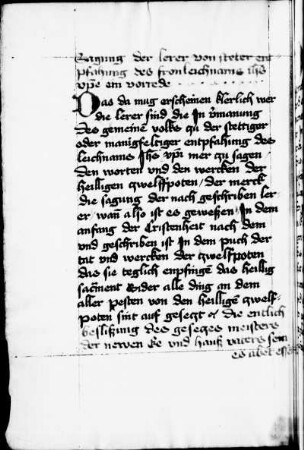 Sagung der lerer von steter ent
pfahung des fronleichnams ihs
xpi ein vorrede
Das da mug erscheinen klerlich wer
die lerer sind die In vmanung
des gemeine volks zu der stettiger
oder manigfeltiger entpfahung des
leichnams Ihs xpi mer zu sagen
den worten und den wercken der
heiligen zwelfpoten / der merck
die sagung der nach geschriben ler
er / wan also ist es gewesen / In dem
anfang der Cristenheit nach dem
vnd geschriben ist In dem puch der
tat vnd wercken der zwelfpoten
das sie teglich enpfinge das heilig
sacment wider alle ding an dem
aller pesten von den heilige zwelf
poten sint auf gesetzt die entlich
beslissung des gesetzes meisters
der newen Ee vnd hauß vaters sein